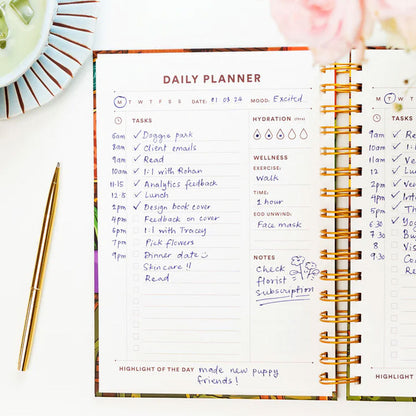 DAILY PLANNER
M T W T F S S DATE: 01 05 24 MOOD: Excited
TASKS
6am ✓ Doggie park
8am ✓ Client emails
9am ✓ Read
10am ✓ 1:1 with Rohan
11-15 ✓ Analytics feedback
12.5 ✓ Lunch
2pm ✓ Design book cover
4pm Feedback on cover
6pm 1:1 with Tracey
7pm Pick flowers
9pm Dinner date
Skincare !!
Read
HYDRATION
WELLNESS
EXERCISE:
Walk
TIME:
1 hour
EOD UNWIND:
Face mask
NOTES
Check
florist
subscription
HIGHLIGHT OF THE DAY made new puppy
friends!
M T W
TASKS
9am
10am
11am
12
2pm
4pm
5
6.30
7.30
8
9
HIGHLIGHT OF